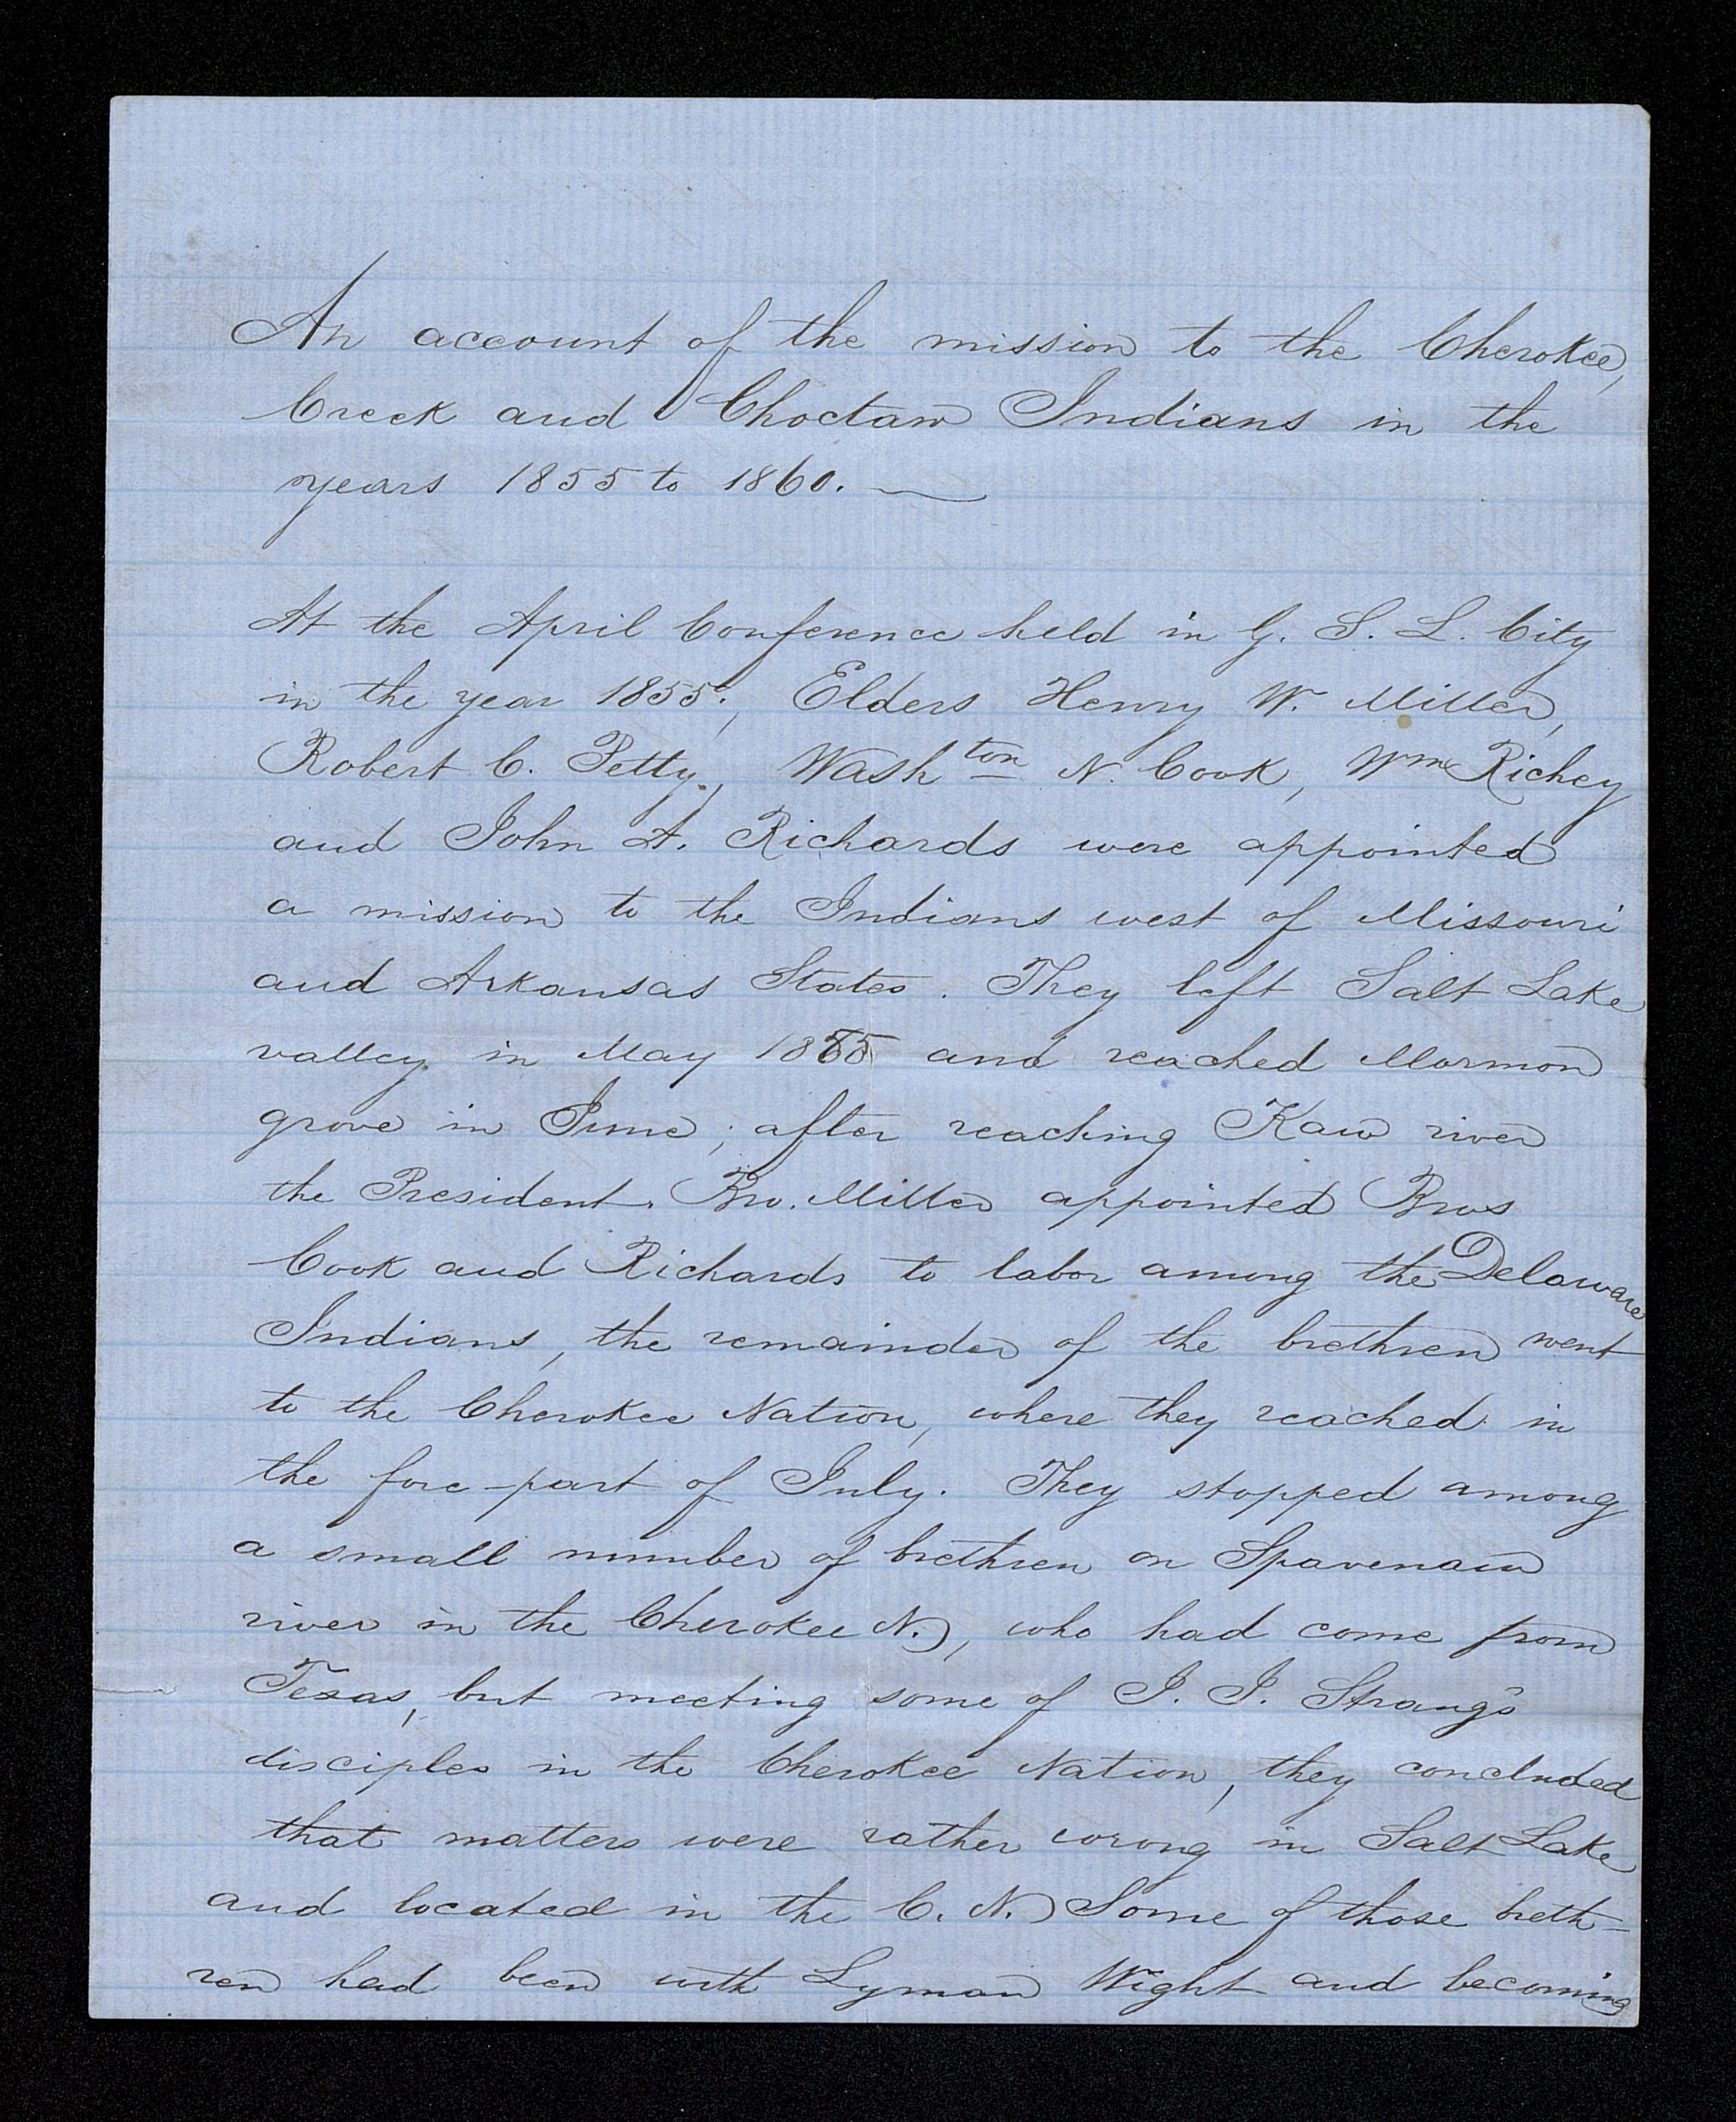 An account of the mission to the Cherokee,
Creek and Choctaw Indians in the
years 1855 to 1860. —
At the April Conference held in G. S. L. City
in the year 1855; Elders Henry W. Miller,
Robert C. Petty, Washton N. Cook, Wm Richey
and John A. Richards were appointed
a mission to the Indians west of Missouri
and Arkansas States. They left Salt Lake
valley in May 1855 and reached Mormon
grove in June; after reaching Kaw river
the President. Bro. Miller appointed Bros
Cook and Richards to labor among the Delaware
Indians, the remainder of the brethren went
to the Cherokee Nation, where they reached in
the fore-part of July. They stopped among
a small number of brethren on Spavenaw
river in the Cherokee N.), who had come from
Texas, but meeting some of J. J. Strang's
disciples in the Cherokee Nation, they concluded
that matters were rather wrong in Salt Lake
and located in the C. N.) Some of those breth-
ren had been with Lyman Wight and becoming